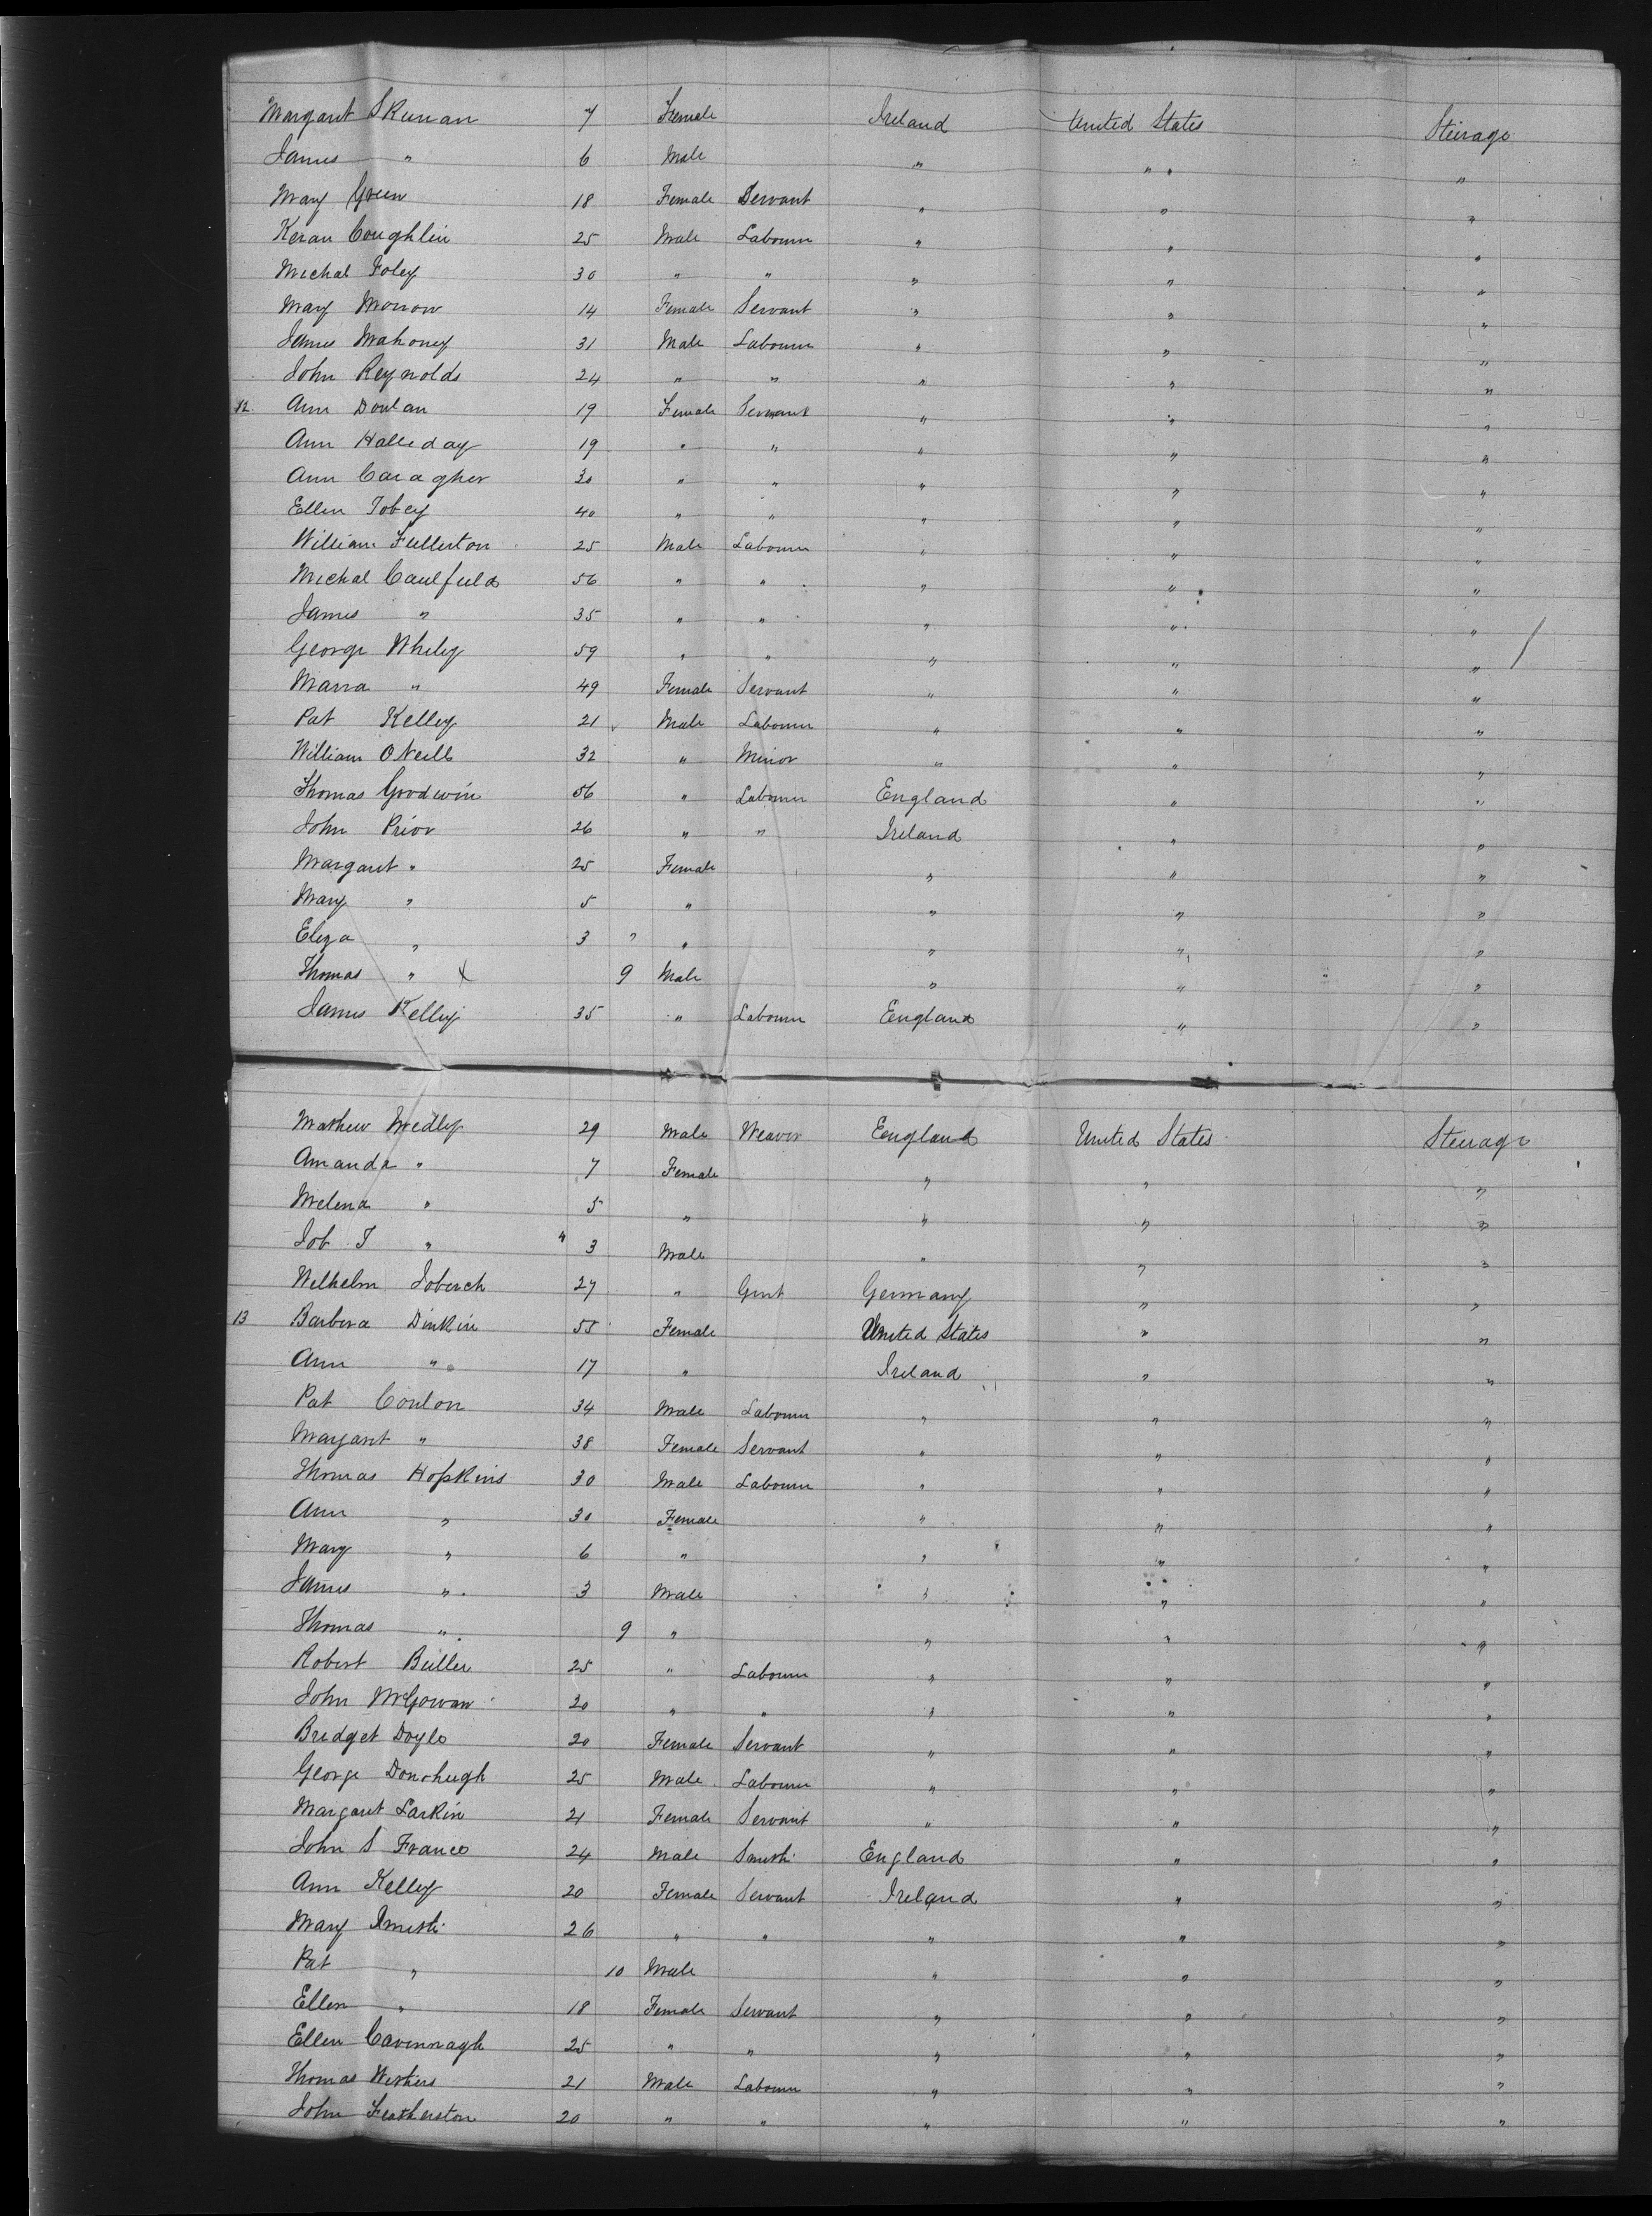 Margaret Skunan 7 Female Ireland United States Steirage
James " 6 Male " " " "
Mary Green 18 Female Servant " " "
Keran Coughlin 25 Male Labourer " " "
Michal Foley 30 " " " " "
Mary Morrow 14 Female Servant " " "
James Mahoney 31 Male Labourer " " "
John Reynolds 24 " " " " "
12. Ann Donlan 19 Female Servant " " "
Ann Halleday 19 " " " " "
Ann Caragher 30 " " " " "
Ellen Tobey 40 " " " " "
William Fullerton 25 Male Labourer " " "
Michal Caulfield 56 " " " " "
James " 35 " " " " "
George Whiley 59 " " " " "
Maria " 49 Female Servant " " "
Pat Kelley 21 Male Labourer " " "
William O Neill 32 " Minor " " "
Thomas Goodwin 56 " Labourer England " "
John Prior 26 " " Ireland " "
Margaret " 25 Female " " "
Mary " 5 " " " "
Eliza " 3 " " " " "
Thomas " X 9 Male " " "
James Kelley 35 " Labourer England " "
Mathew Medley 29 Male Weaver England United States Steirage
Amanda " 7 Female " " "
Melena " 5 " " " "
Job T " " 3 Male " " "
Wilhelm Joberch 27 " Gent Germany " "
13 Barbera Dinkin 55 Female United States " "
Ann " 17 " Ireland " "
Pat Conlon 34 Male Labourer " " "
Margaret " 38 Female Servant " " "
Thomas Hopkins 30 Male Labourer " " "
Ann " 30 Female " " "
Mary " 6 " " " "
James " 3 Male " " "
Thomas " 9 " " " "
Robert Butler 25 " Labourer " " "
John McGowan 20 " " " " "
Bridget Doyle 20 Female Servant " " "
George Donohugh 25 Male Labourer " " "
Margaret Larkin 21 Female Servant " " "
John S France 24 Male Smith England " "
Ann Kelley 20 Female Servant Ireland " "
Mary Smith 26 " " " " "
Pat " 10 Male " " "
Ellen " 18 Female Servant " " "
Ellen Cavennagh 25 " " " " "
Thomas Withers 21 Male Labourer " " "
John Featherston 20 " " " " "